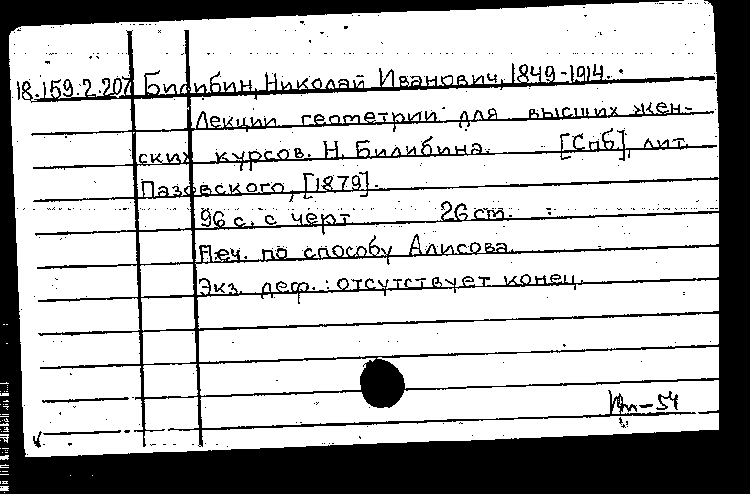 18.159.2.207 Билибин, Николай Иванович, 1849-1914.
Лекции геометрии для высших жен-
ских курсов. Н. Билибина. [Спб], лит.
Пазовского, [1879].
96 с. с черт 26 cm.
Печ. по способу Алисова.
Экз. деф.: отсутствует конец.
-54